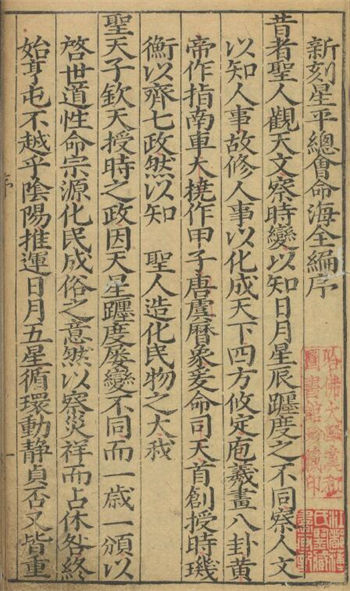 新刻星平總會命海全編序
昔者聖人觀天文察時變以知日月星辰躔度之不同察人文
以知人事故修人事以化成天下四方攸定庖羲畫八卦黃
帝作指南車大撓作甲子唐虞曆象爰命司天首創授時璣
衡以齊七政然以知 聖人造化民物之大我
聖天子欽天授時之政因天星躔度屡變不同而一歲一頒以
啓世道性命宗源化民成俗之意然以察災祥而占休咎終
始亨屯不越乎陰陽推運日月五星循環動靜貞否又皆重
序